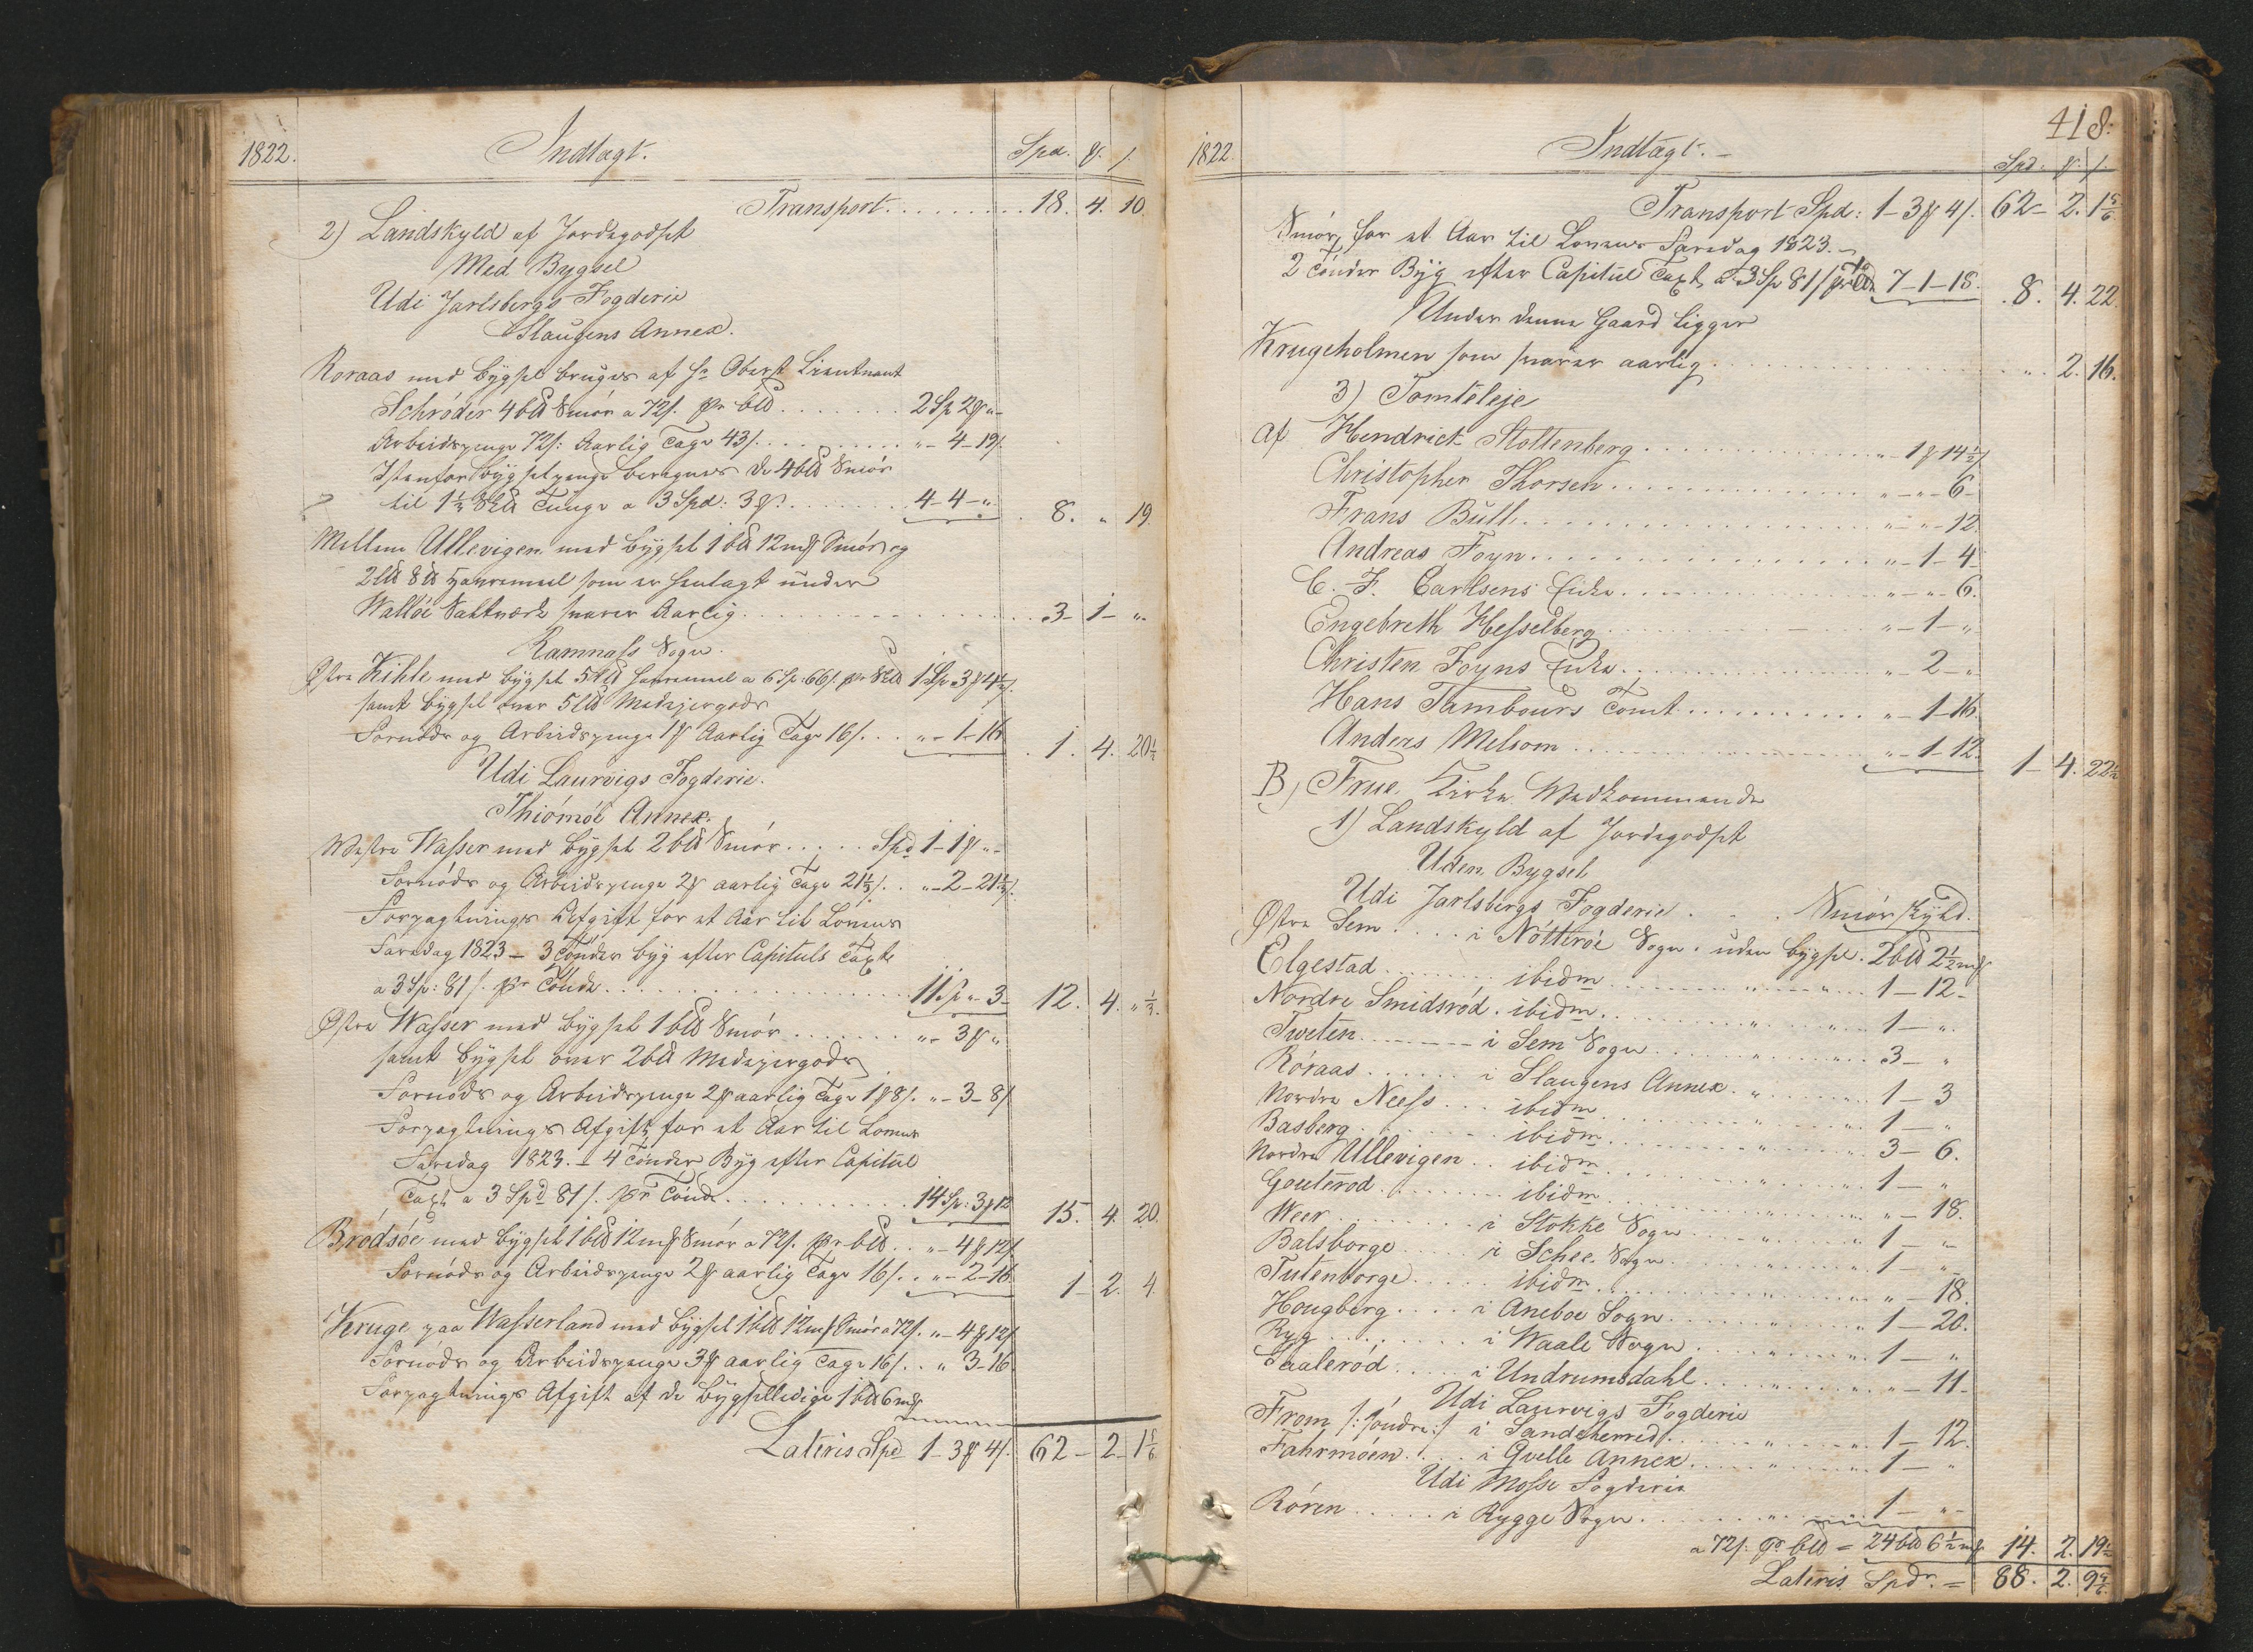 1822. Indtægt. Spd. ß. s.
Transport......... 18. 4. 10.
2) Landskyld af Jordegodset
Med Bygsel
Udi Jarlsbergs Fogderie
Slaugens Annex.
Roraas med bygsel bruges af Hr Oberst Lieutnant
Schröder 4 b℔ Smör a 72 s. pr b℔....... 2 Sp 2 ß "-
Arbeidspenge 72 s: Aarlig Tage 43 s.......... "- 4-19 s.
Istedenfor bygselpenge beregnes de 4 b℔ Smör
til 1½ Tunge a 3 Spd: 3 ß....... 4-4-". 8. " 19.
Mellem Ullevigen med bygsel 1 b℔ 12 mk Smör og
2 l℔ 8 ℔ Havremeel som er henlagt under
Wallöe Saltværk svarer Aarlig.............. 3- 1- "-
Ramnæss Sogn.
Östre Kihle med bygsel 5 l℔ Havremeel a 6 Sp: 66 s. pr 1 Sp 3 ß 4½ s.
samt bygsel over 5 l℔ Medejergods
Fornöds og Arbeidspenge 1 ß Aarlig Tage 16 s... "- 1-16 1. 4. 20½
Udi Laurvigs Fogderie.
Thiömöe Annex.
Westre Wasser med bygsel 2 b℔ Smör..... Spd 1-1 ß "-
Fornöds og Arbeidspenge 2 ß aarlig Tage 21⅓ s.. "-2-21⅓ s.
Forpagtnings Afgift for et Aar til Lomens
Faredag 1823 - 3 Tönder byg efter Capituls Taxt
a 3 Sp: 81 s. pr Tönde................ 11 Sp "- 3- 12. 4. "⅓.
Östre Wasser med bygsel 1 b℔ Smör........ "- 3 ß "
samt bygsel over 2 b℔ Medejergods
Fornöds og Arbeidspenge 2 ß aarlig Tage 1 ß 8 s. "- 3-8 s
Forpagtnings Afgift for et Aar til Lomens
Faredag 1823. - 4 Tönder Byg efter Capitul
Taxt a 3 Spd 81 s. pr Tönde............ 14 Sp: 3 ß 12 15. 4. 20.
Brödsöe med bygsel 1 b℔ 12 mk Smör a 72 s. pr b℔.. "- 4 ß 12 s
Fornöds og Arbeidspenge 2 ß aarlig Tage 16 s.. "- 2-16 1- 2. 4.
Kruge paa Wasserland med bygsel 1 b℔ 12 mk Smör a 72 s. "- 4 ß 12 s
Fornöds og Arbeidspenge 3 ß aarlig Tage 16 s.. " 3-16
Forpagtnings Afgift af de bygselledige 1 b℔ 6 mk
Lateris Spd 1-3 ß 4 s. 62- 2- 1⅚
418.
1822. Indtægt. - Spd. ß. s.
Transport Spd: 1-3 ß 4 s. 62- 2. 1⅚
Smör, for et Aar til Lomens Faredag 1823.-
2 Tönder Byg efter Capitul Taxt a 3 Sp 81 s pr Td 7-1-18. 8. 4. 22.
Under denne Gaard ligger
Krugeholmen som svarer aarlig............ ". 2. 16.
3) Tomteleje
Af Hendrick Stoltenberg............. "- 1 ß 14½ s
Christopher Thorsen............. "-"- 6-
Frans Bull.................. "-"-12.
Andreas Foyn................. "-1-4-
C. F. Carlsens Enke............ "-"-6.
Engebreth Hesselberg........... "-1-"-
Christen Foyns Enke............ "-2-"
Hans Tambours Tomt.......... "-1-16.
Anders Melsom............... "-1-12. 1- 4. 22½
B) Frue Kirke Vedkommende
1) Landskyld af Jordegodset
Uden Bygsel
Udi Jarlsbergs Fogderie... Smör skyld.
Östre Sem.... i Nötteröe Sogn. uden bygsel. 2 b℔ 2½ mk
Elgestad....... ibidm........ 1-12-
Nordre Smidsröd. ibidm........ 1-".
Tweten........ i Sem Sogn........ 3-"
Röraas...... i Slaugens Annex........ 1-3
Nordre Neess... ibidm........ 1-"
Basberg........ ibidm........ 3-6.
Nordre Ullevigen.. ibidm........ 1-"
Gouteröd........ ibidm........ "-18.
Weer........ i Stokke Sogn........ 1-"
Balsborge..... i Schee Sogn........ 1-"
Tutenborge..... ibidm........ "-18.
Hougberg.... i Aneboe Sogn........ 1-20.
Ryg........ i Waale Sogn........ 1-"
Paaleröd..... i Undrumsdahl........ "-11-
Udi Laurvigs Fogderie
From /:söndre:/ i Sandeherred........ 1-12.
Fahrmöen.... i Qvelle Annex........ 1-"
Udi Mosse Fogderie
Rören..... i Rygge Sogn........ 1-"-
a 72 s. pr b℔ = 24 b℔ 6½ mk 14. 2. 19½
Lateris Spdr. = 88. 2. 9⅚